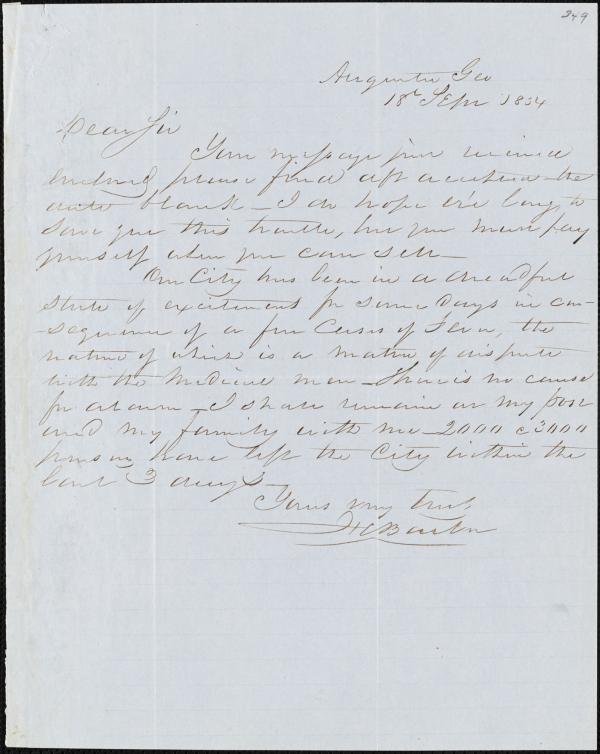 249
Augusta Geo
18th Sepr 1854
Dear Sir
Your message just received
Enclosed please find dft accepted the
date blank — I do hope ere long to
save you this trouble, but you must pay
yourself when you can sell —
Our City has been in a dreadful
state of excitement for some days in con-
-sequence of a few Cases of Fever, the
nature of which is a matter of dispute
with the Medical men — There is no cause
for alarm — I shall remain at my post
and my family with me — 2000 @ 3000
persons have left the City within the
last 3 days
Yours very truly